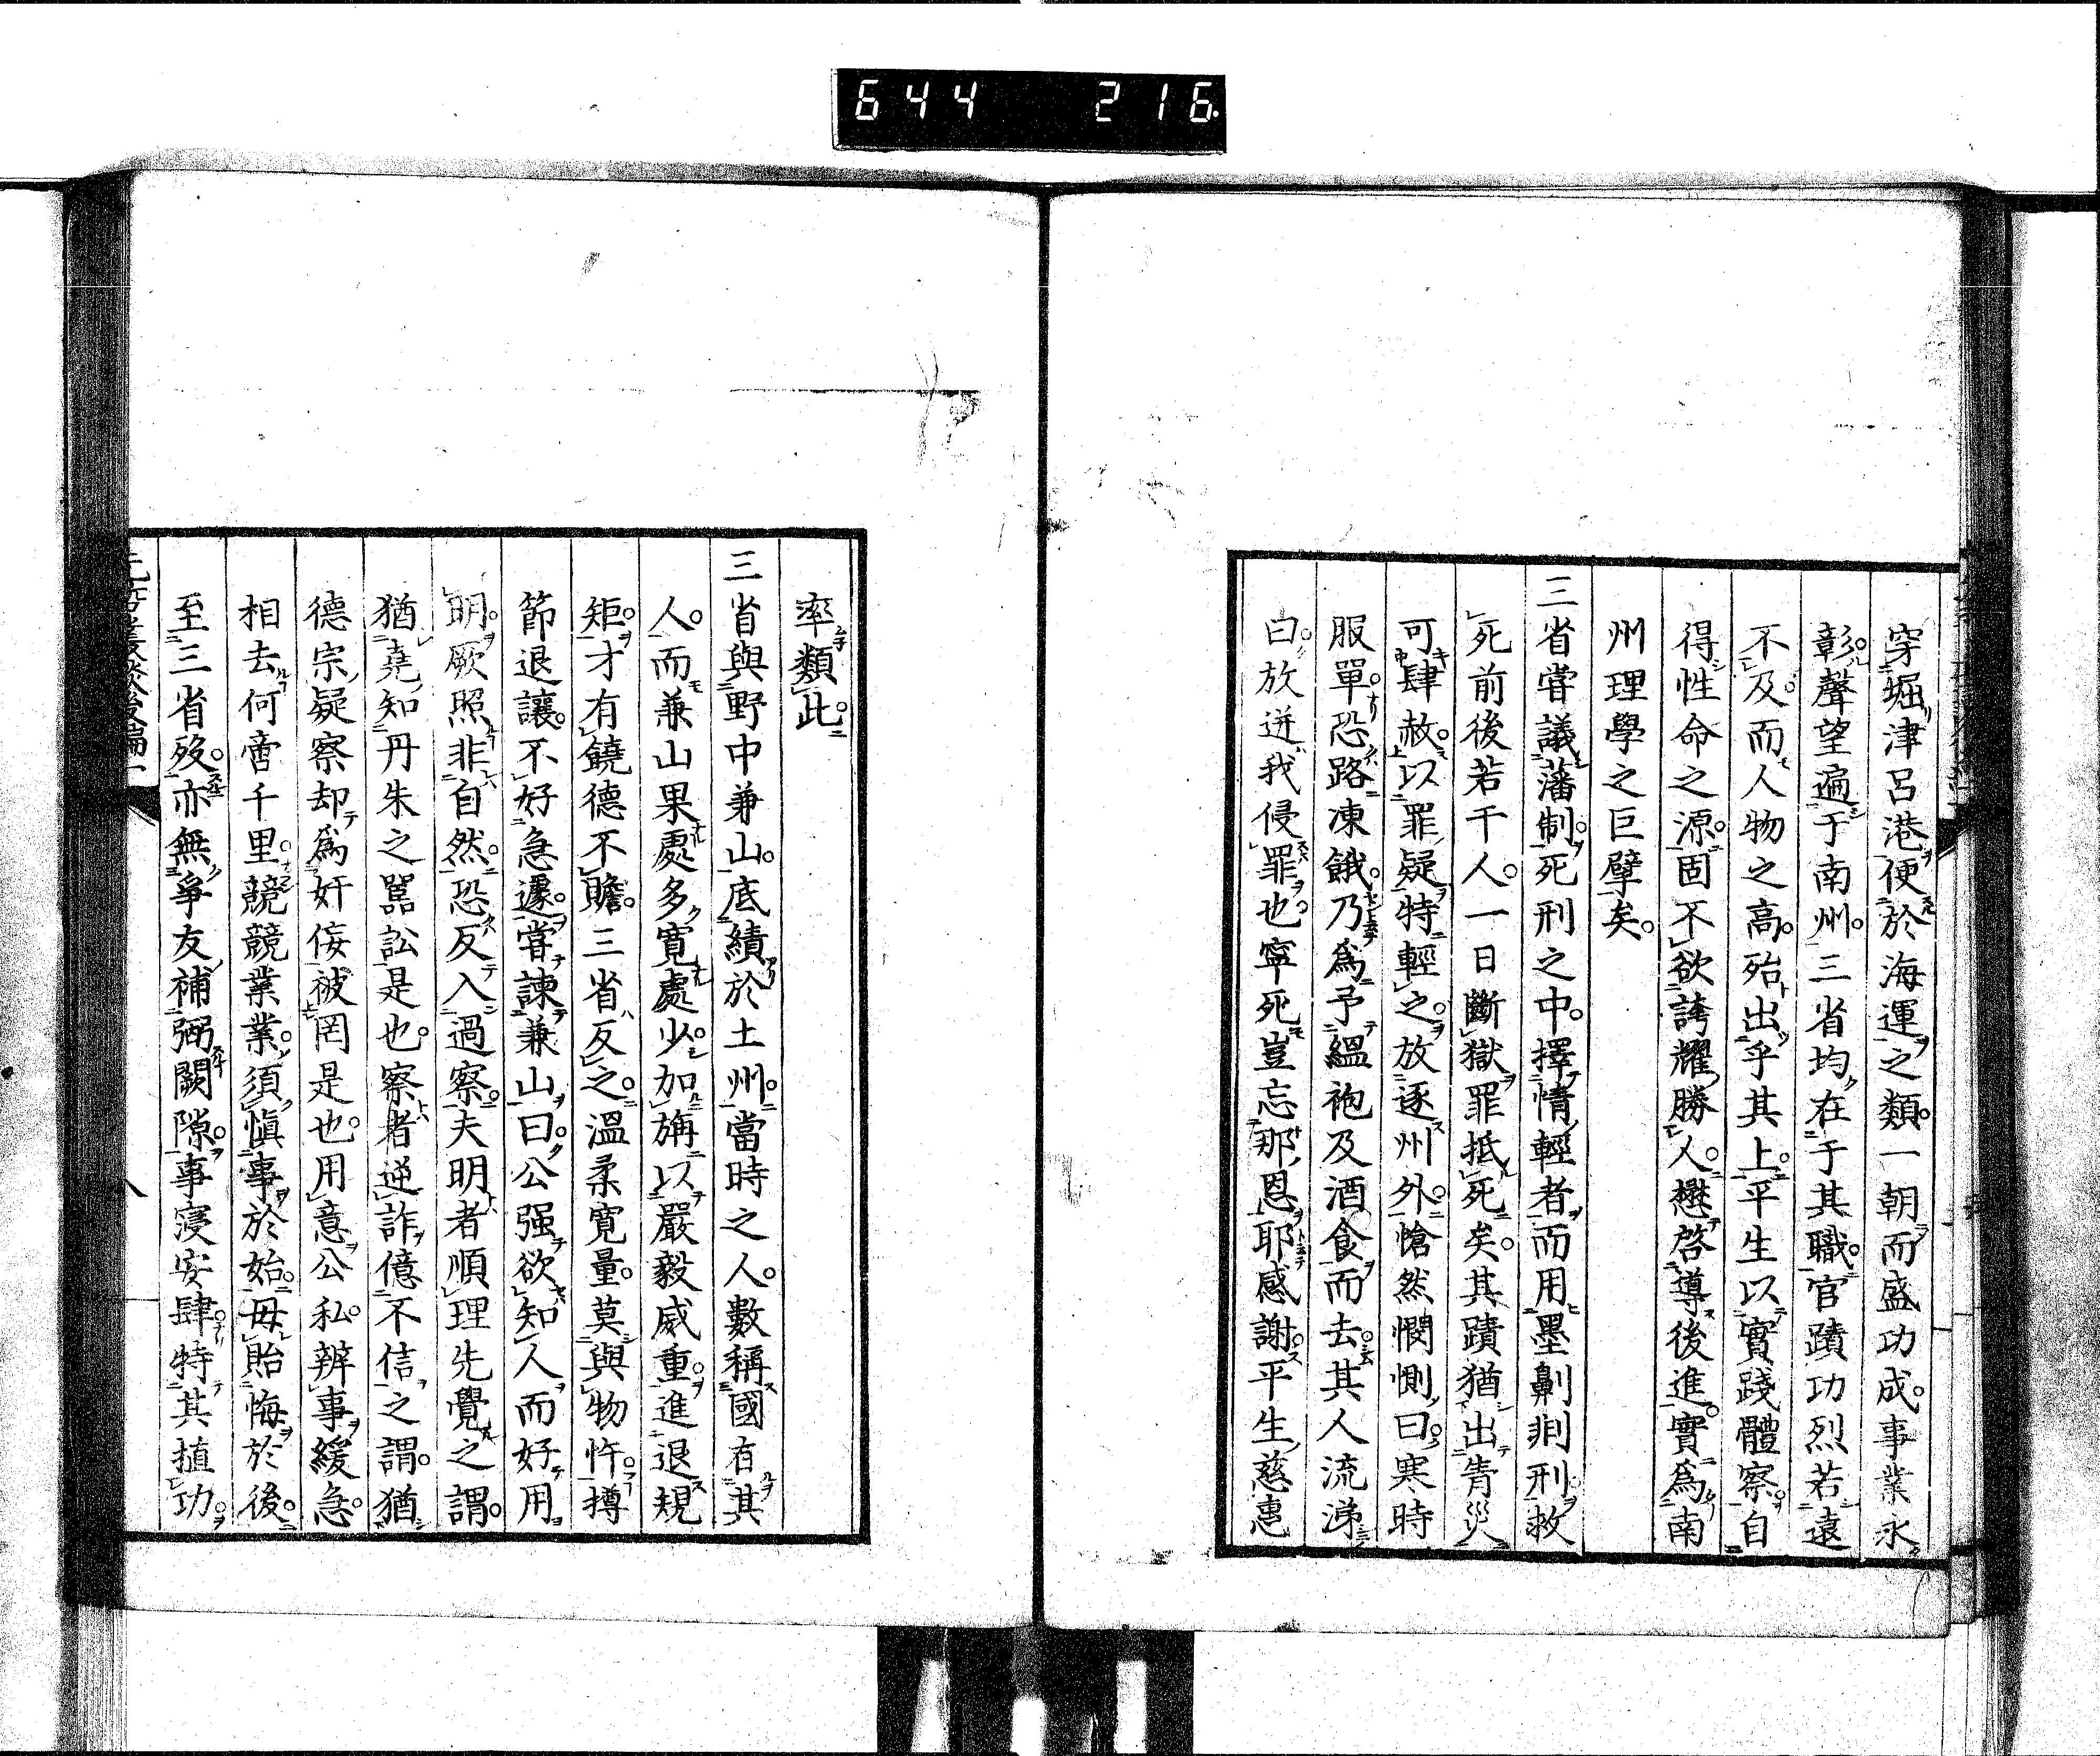 644 216
穿堀津呂港便於海運之類。一朝而盛功成。事業永
彰。聲望遍于南州。三省均在于其職。官蹟功烈若遠
不及。而人物之高。殆出乎其上。平生以實踐體察。自
得性命之源。固不欲誇耀勝人。懋啓導後進。實爲南
州理學之巨擘矣。
三省嘗議藩制。死刑之中。擇情輕者而用墨劓剕刑。救
死前後若干人。一日斷獄罪抵死矣。其蹟猶出眚災
可肆赦。以罪疑特輕之。放逐州外。愴然憫惻曰。寒時
服單。恐路凍餓。乃爲予縕袍及酒食而去。其人流涕
曰。放迸我侵罪也。寧死豈忘那恩耶。感謝平生慈惠
率類此。
三省與野中兼山。底績於土州。當時之人。數稱國有其
人。而兼山果處多。寛處少。加旃以嚴毅威重。進退規
矩。才有饒德不贍。三省反之。溫柔寛量。莫與物忤。撙
節退讓。不好急遽。嘗諫兼山曰。公强欲知人而好用
明。厥照非自然。恐反入過察。夫明者順理先覺之謂。
猶堯知丹朱之嚚訟是也。察者逆詐億不信之謂。猶
德宗疑察却爲奸侫被罔是也。用意公私。辨事緩急。
相去何啻千里。競競業業。須愼事於始。毋貽悔於後。
至三省歿。亦無爭友補弼闕隙。事寖安肆。特其植功